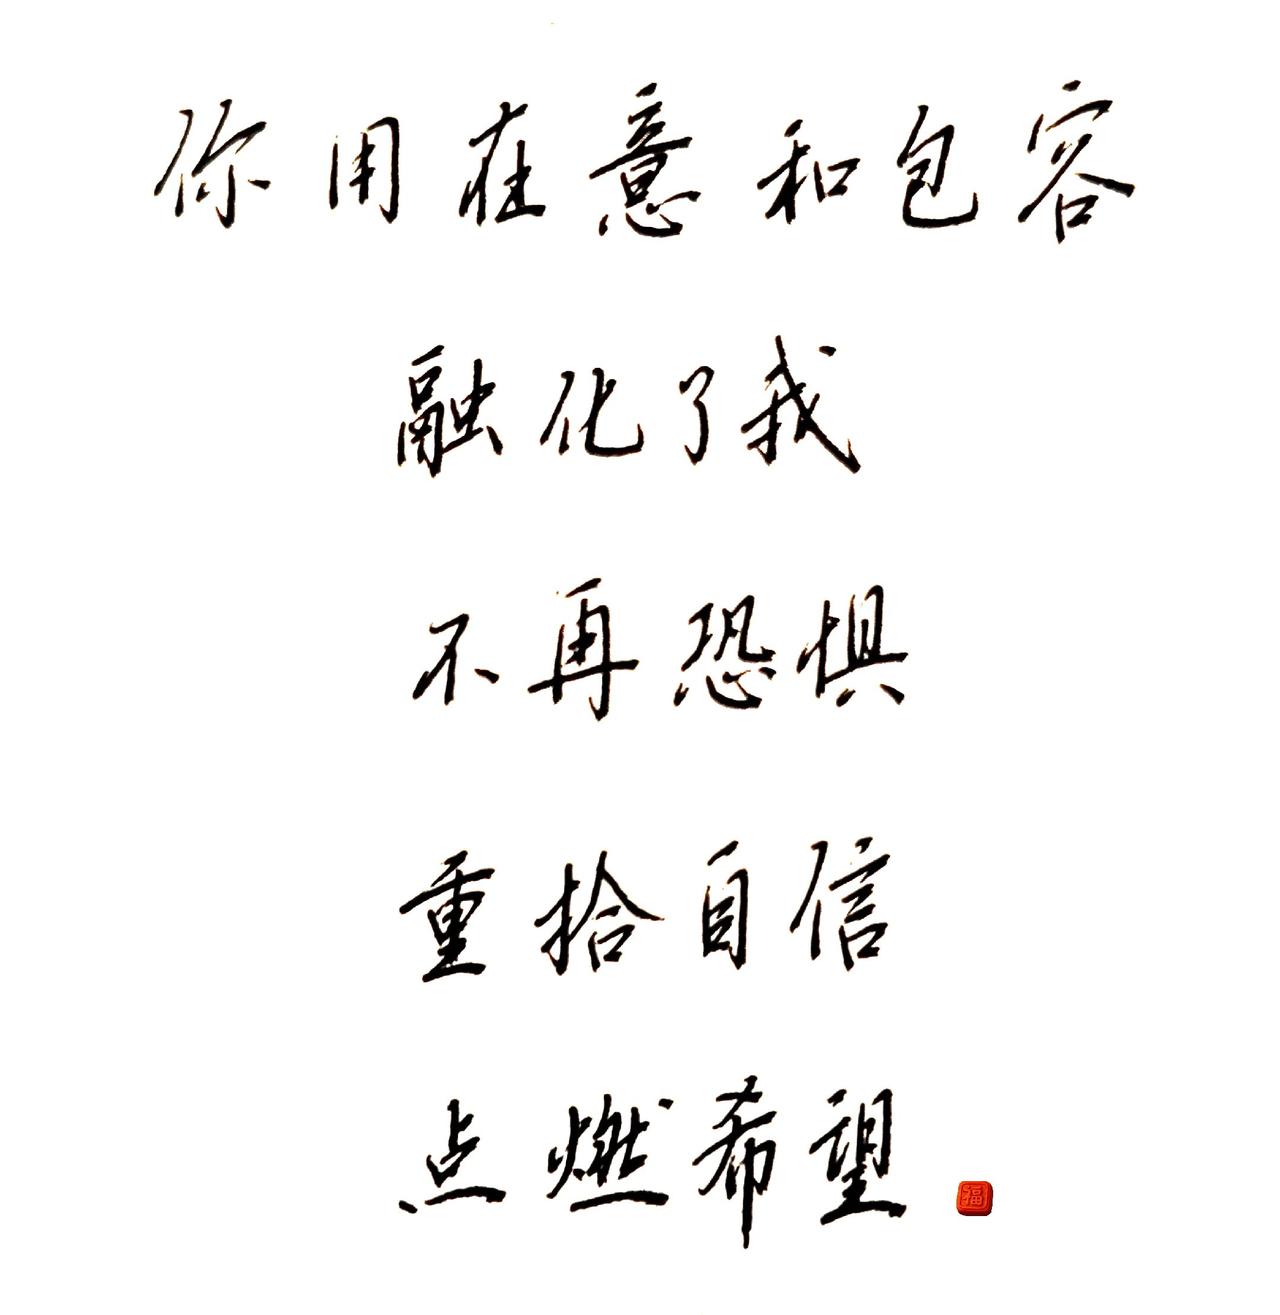 你用在意和包容
融化了我
不再恐惧
重拾自信
点燃希望
福